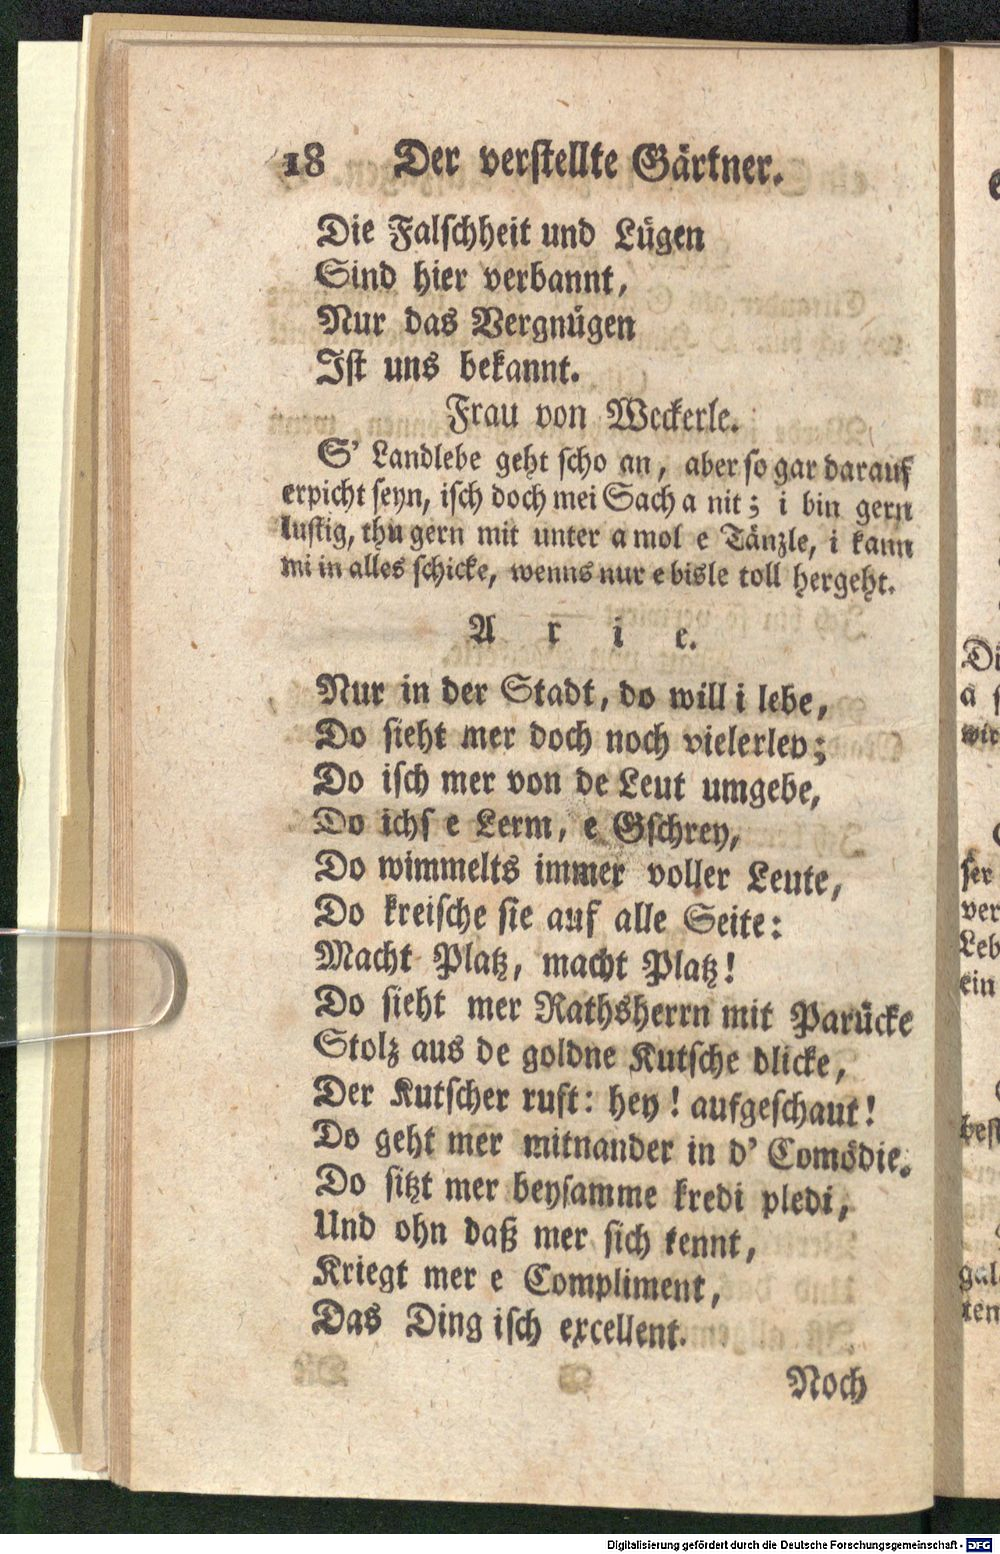 18 Der verstellte Gärtner.
Die Falschheit und Lügen
Sind hier verbannt,
Nur das Vergnügen
Ist uns bekannt.
Frau von Weckerle.
S' Landlebe geht scho an, aber so gar darauf
erpicht seyn, isch doch mei Sach a nit; i bin gern
lustig, thu gern mit unter a mol e Tänzle, i kann
mi in alles schicke, wenns nur e bisle toll hergeht.
A r i e.
Nur in der Stadt, do will i lebe,
Do sieht mer doch noch vielerley;
Do isch mer von de Leut umgebe,
Do ichs e Lerm, e Gschrey,
Do wimmelts immer voller Leute,
Do kreische sie auf alle Seite:
Macht Platz, macht Platz!
Do sieht mer Rathsherrn mit Parücke
Stolz aus de goldne Kutsche blicke,
Der Kutscher ruft: hey! aufgeschaut!
Do geht mer mitnander in d' Comödie.
Do sitzt mer beysamme kredi pledi,
Und ohn daß mer sich kennt,
Kriegt mer e Compliment,
Das Ding isch excellent.
Noch
Digitalisierung gefördert durch die Deutsche Forschungsgemeinschaft - DFG